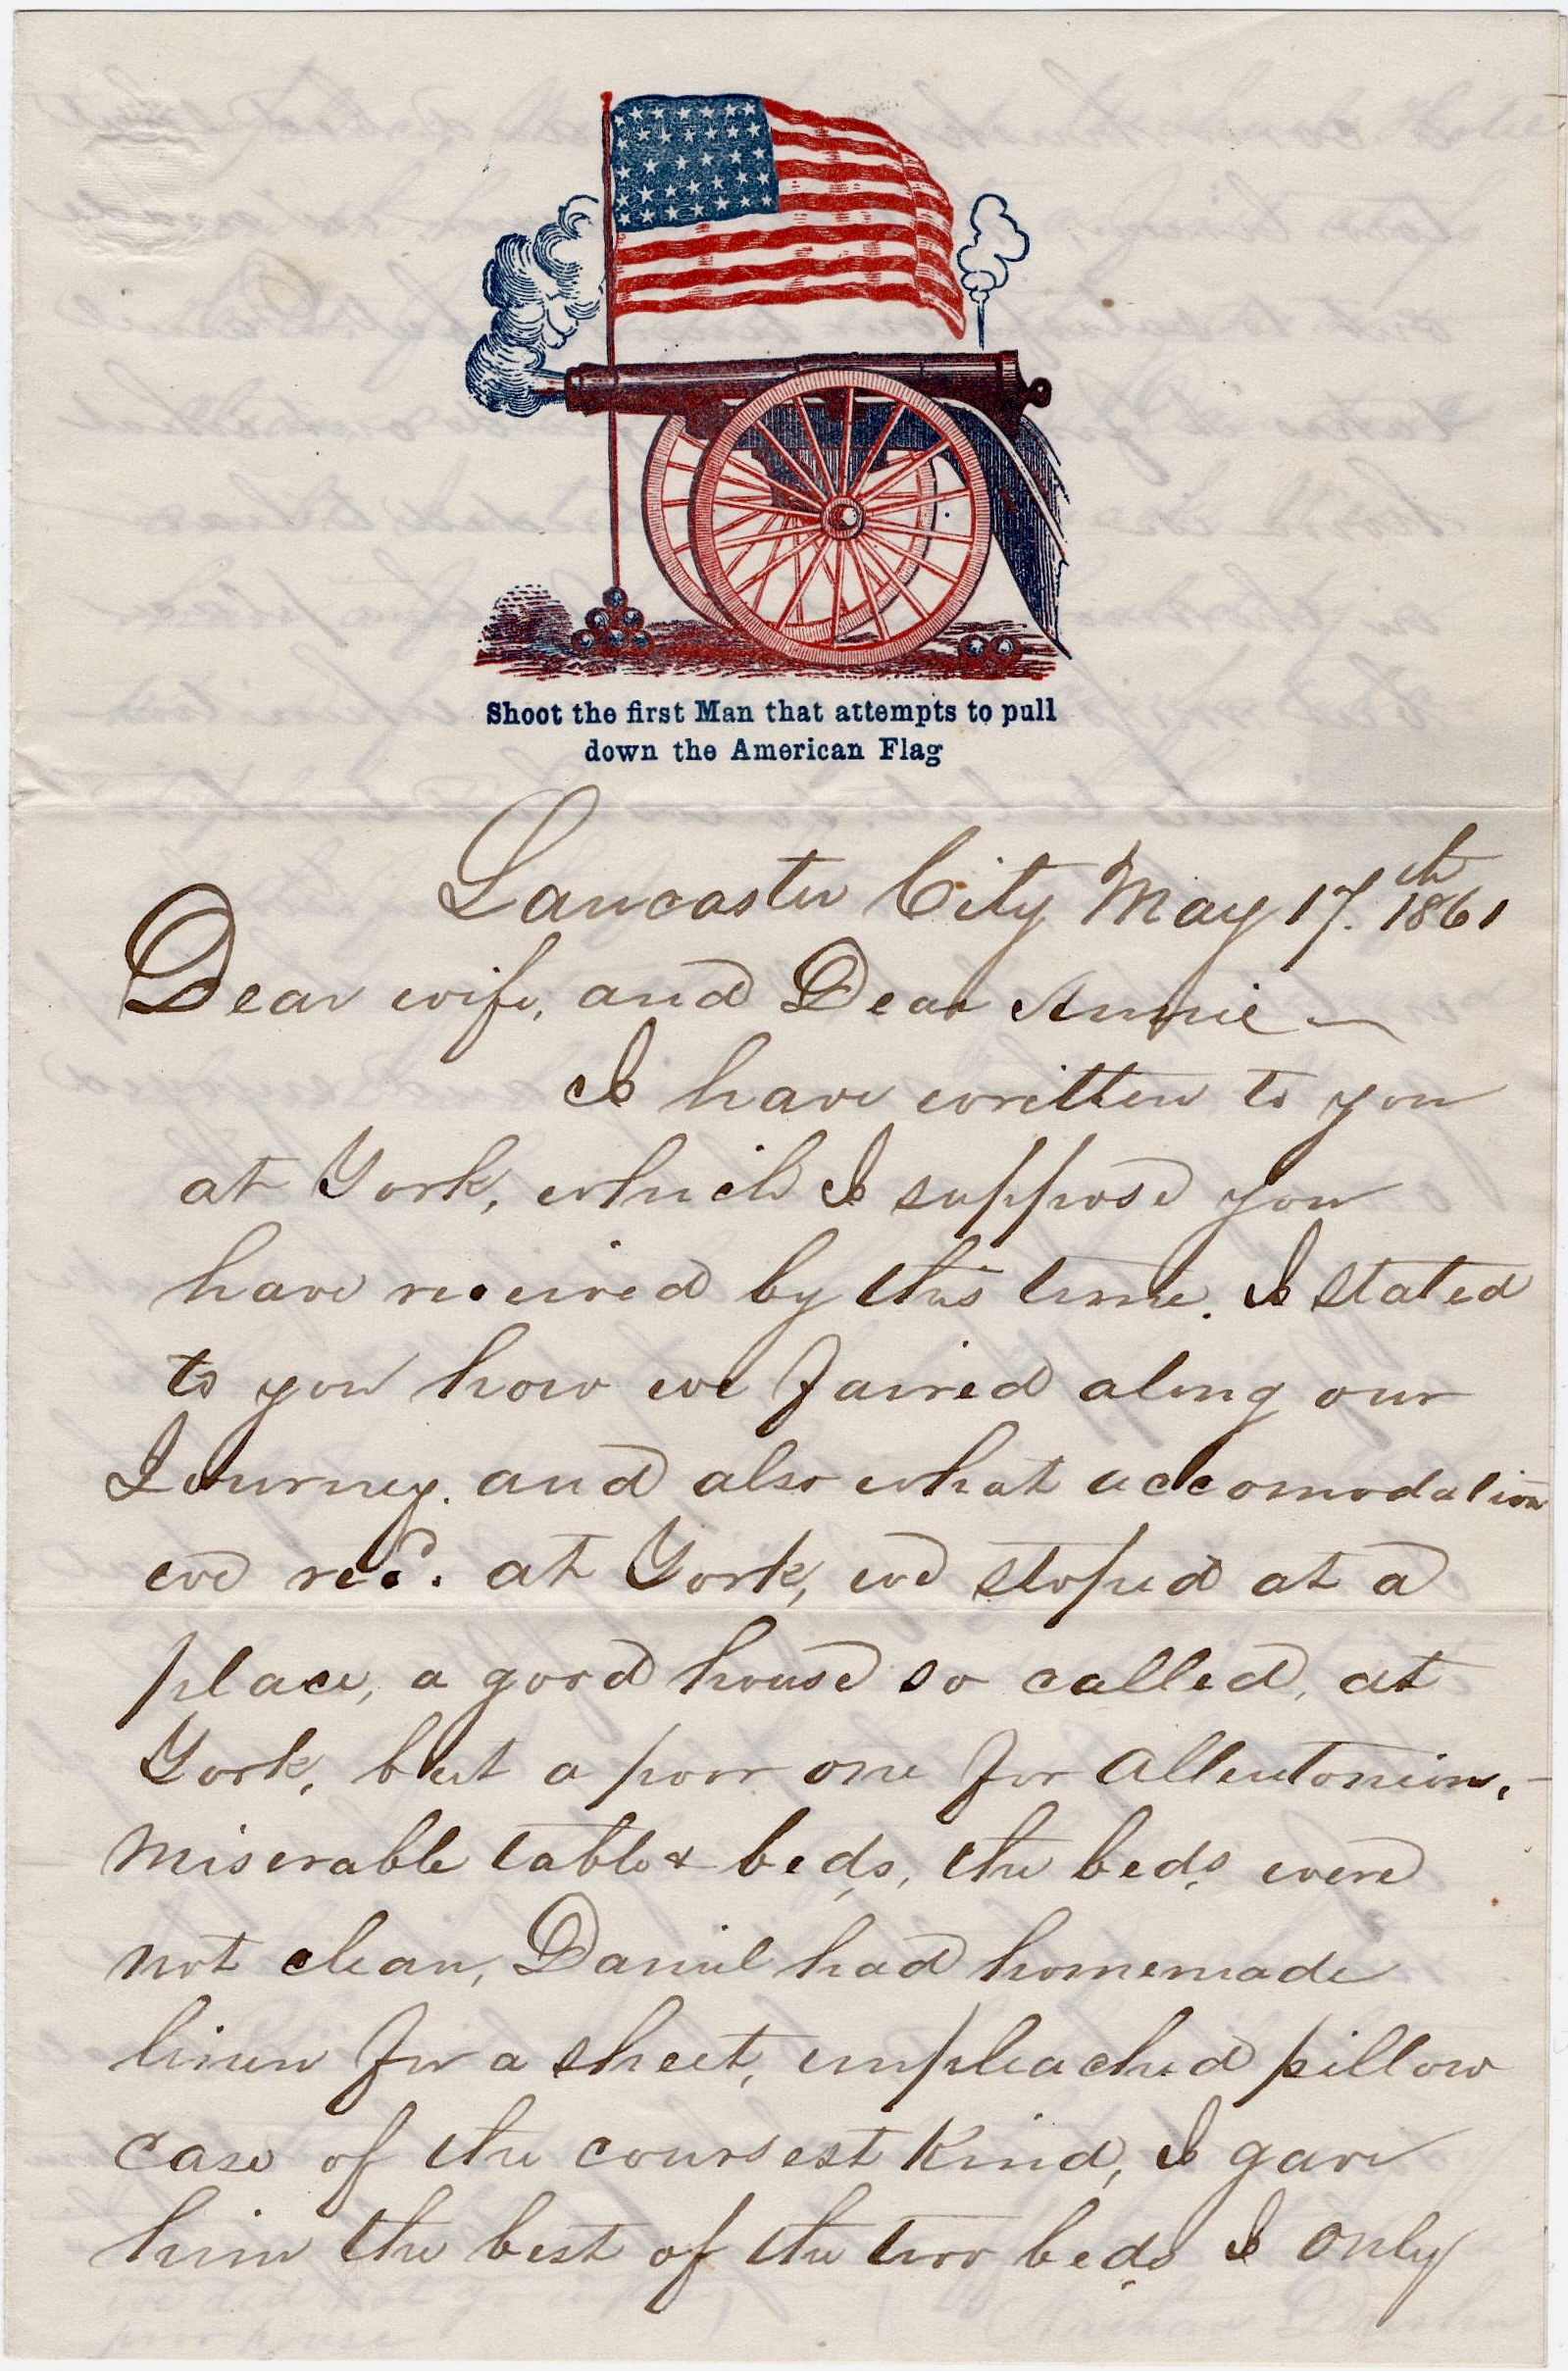 Shoot the first Man that attempts to pull
down the American Flag
Lancaster City May 17.th 1861
Dear wife, and Dear Annie —
I have written to you
at York, which I suppose you
have received by this time. I stated
to you how we faired along our
Journey. and also what accomodation
we recd. at York, we stoped at a
place, a good house so called, at
York, but a poor one for Allentonien, -
miserable table & beds, the beds were
not clean, Daniel had homemade
linen for a sheet, unpleached pillow
case of the coursest kind, I gave
him the best of the two beds I only